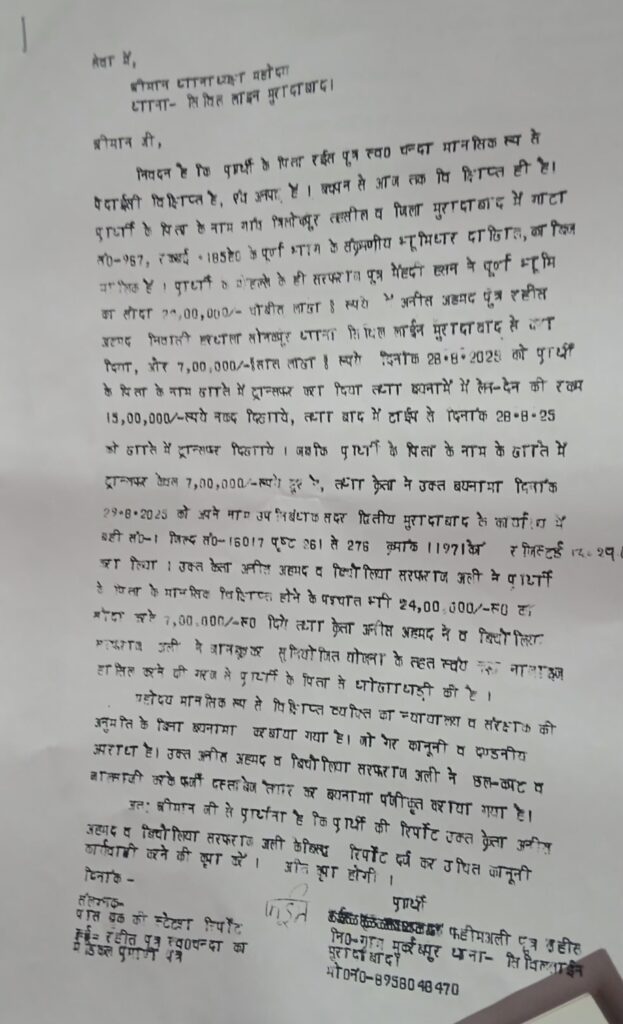 सेवा में,
श्रीमान थानाध्यक्ष महोदय
थाना- सिविल लाईन मुरादाबाद।
श्रीमान जी,
निवेदन है कि प्रार्थी के पिता रईस पुत्र स्व0 चन्दा मानसिक रूप से
पैदाईसी विक्षिप्त है, एवं अनपढ़ है । बचपन से आज तक विक्षिप्त ही है।
प्रार्थी के पिता के नाम गांव तहसील व जिला मुरादाबाद में गाटा
सं0-967, रकबई .185हे0 के पूर्ण भाग के संक्रमणीय भूमिधर दाखिल, काबिज
मालिक है । प्रार्थी के मोहल्ले के ही सरफराज पुत्र मेंहदी हसन ने पूर्ण भूमि
का सौदा लाख रूपये में अनीस अहमद पुत्र रहीस
अहमद निवासी हरथला सोनकपुर थाना सिविल लाईन मुरादाबाद से करा
दिया, और 7,00,000/-सात लाख रूपये दिनांक 28.8.2025 को प्रार्थी
के पिता के नाम खाते में ट्रान्सफर करा दिया तथा बयनामें में लेन-देन की रकम
15,00,000/-रूपये नकद दिखाये, तथा बाद में टाईप से दिनांक 28.8.25
को खाते में ट्रान्सफर दिखाये । जबकि प्रार्थी के पिता के नाम के खाते में
ट्रान्सफर केवल 7,00,000/-रूपये हुए है, तथा क्रेता ने उक्त बयनामा दिनांक
29.8.2025 को अपने नाम उप निबंधक सदर द्वितीय मुरादाबाद के कार्यालय में
बही सं0-1 जिल्द सं0-16017 पृष्ठ 261 से 276 क्रमांक 11971 रजिस्टर्ड
करा लिया । उक्त क्रेता अनीस अहमद व बिचौलिया सरफराज अली ने प्रार्थी
के पिता के मानसिक विक्षिप्त होने के पश्चात भी 24,00,000/-रू0 का
सौदा करके 7,00,000/-रू0 दिये तथा क्रेता अनीस अहमद ने व बिचौलिया
सरफराज अली ने जानबूझकर सुनियोजित योजना के तहत स्वयं नाजायज
हासिल करने की गरज से प्रार्थी के पिता से धोखाधड़ी की है ।
महोदय मानसिक रूप से विक्षिप्त व्यक्ति का न्यायालय व संरक्षक की
अनुमति के बिना बयनामा करवाया गया है। जो गैर कानूनी व दण्डनीय
अपराध है। उक्त अनीस अहमद व बिचौलिया सरफराज अली ने छल-कपट व
जालसाजी करके फर्जी दस्तावेज तैयार कर बयनामा पंजीकृत कराया गया है।
अत: श्रीमान जी से प्रार्थना है कि प्रार्थी की रिपोर्ट उक्त क्रेता अनीस
अहमद व बिचौलिया सरफराज अली के विरूद्ध रिपोर्ट दर्ज कर उचित कानूनी
कार्यवाही करने की कृपा करें । अति कृपा होगी ।
दिनांक -
प्रार्थी
संलग्नक-
फहीमअली पुत्र रहीस
पास बुक की स्टेटमेन्ट रिपोर्ट
नि0-ग्राम थाना- सिविललाईन
रहीस पुत्र स्व0चन्दा का
मुरादाबाद।
मेडिकल प्रमाण पत्र
मो0नं0-8958048470